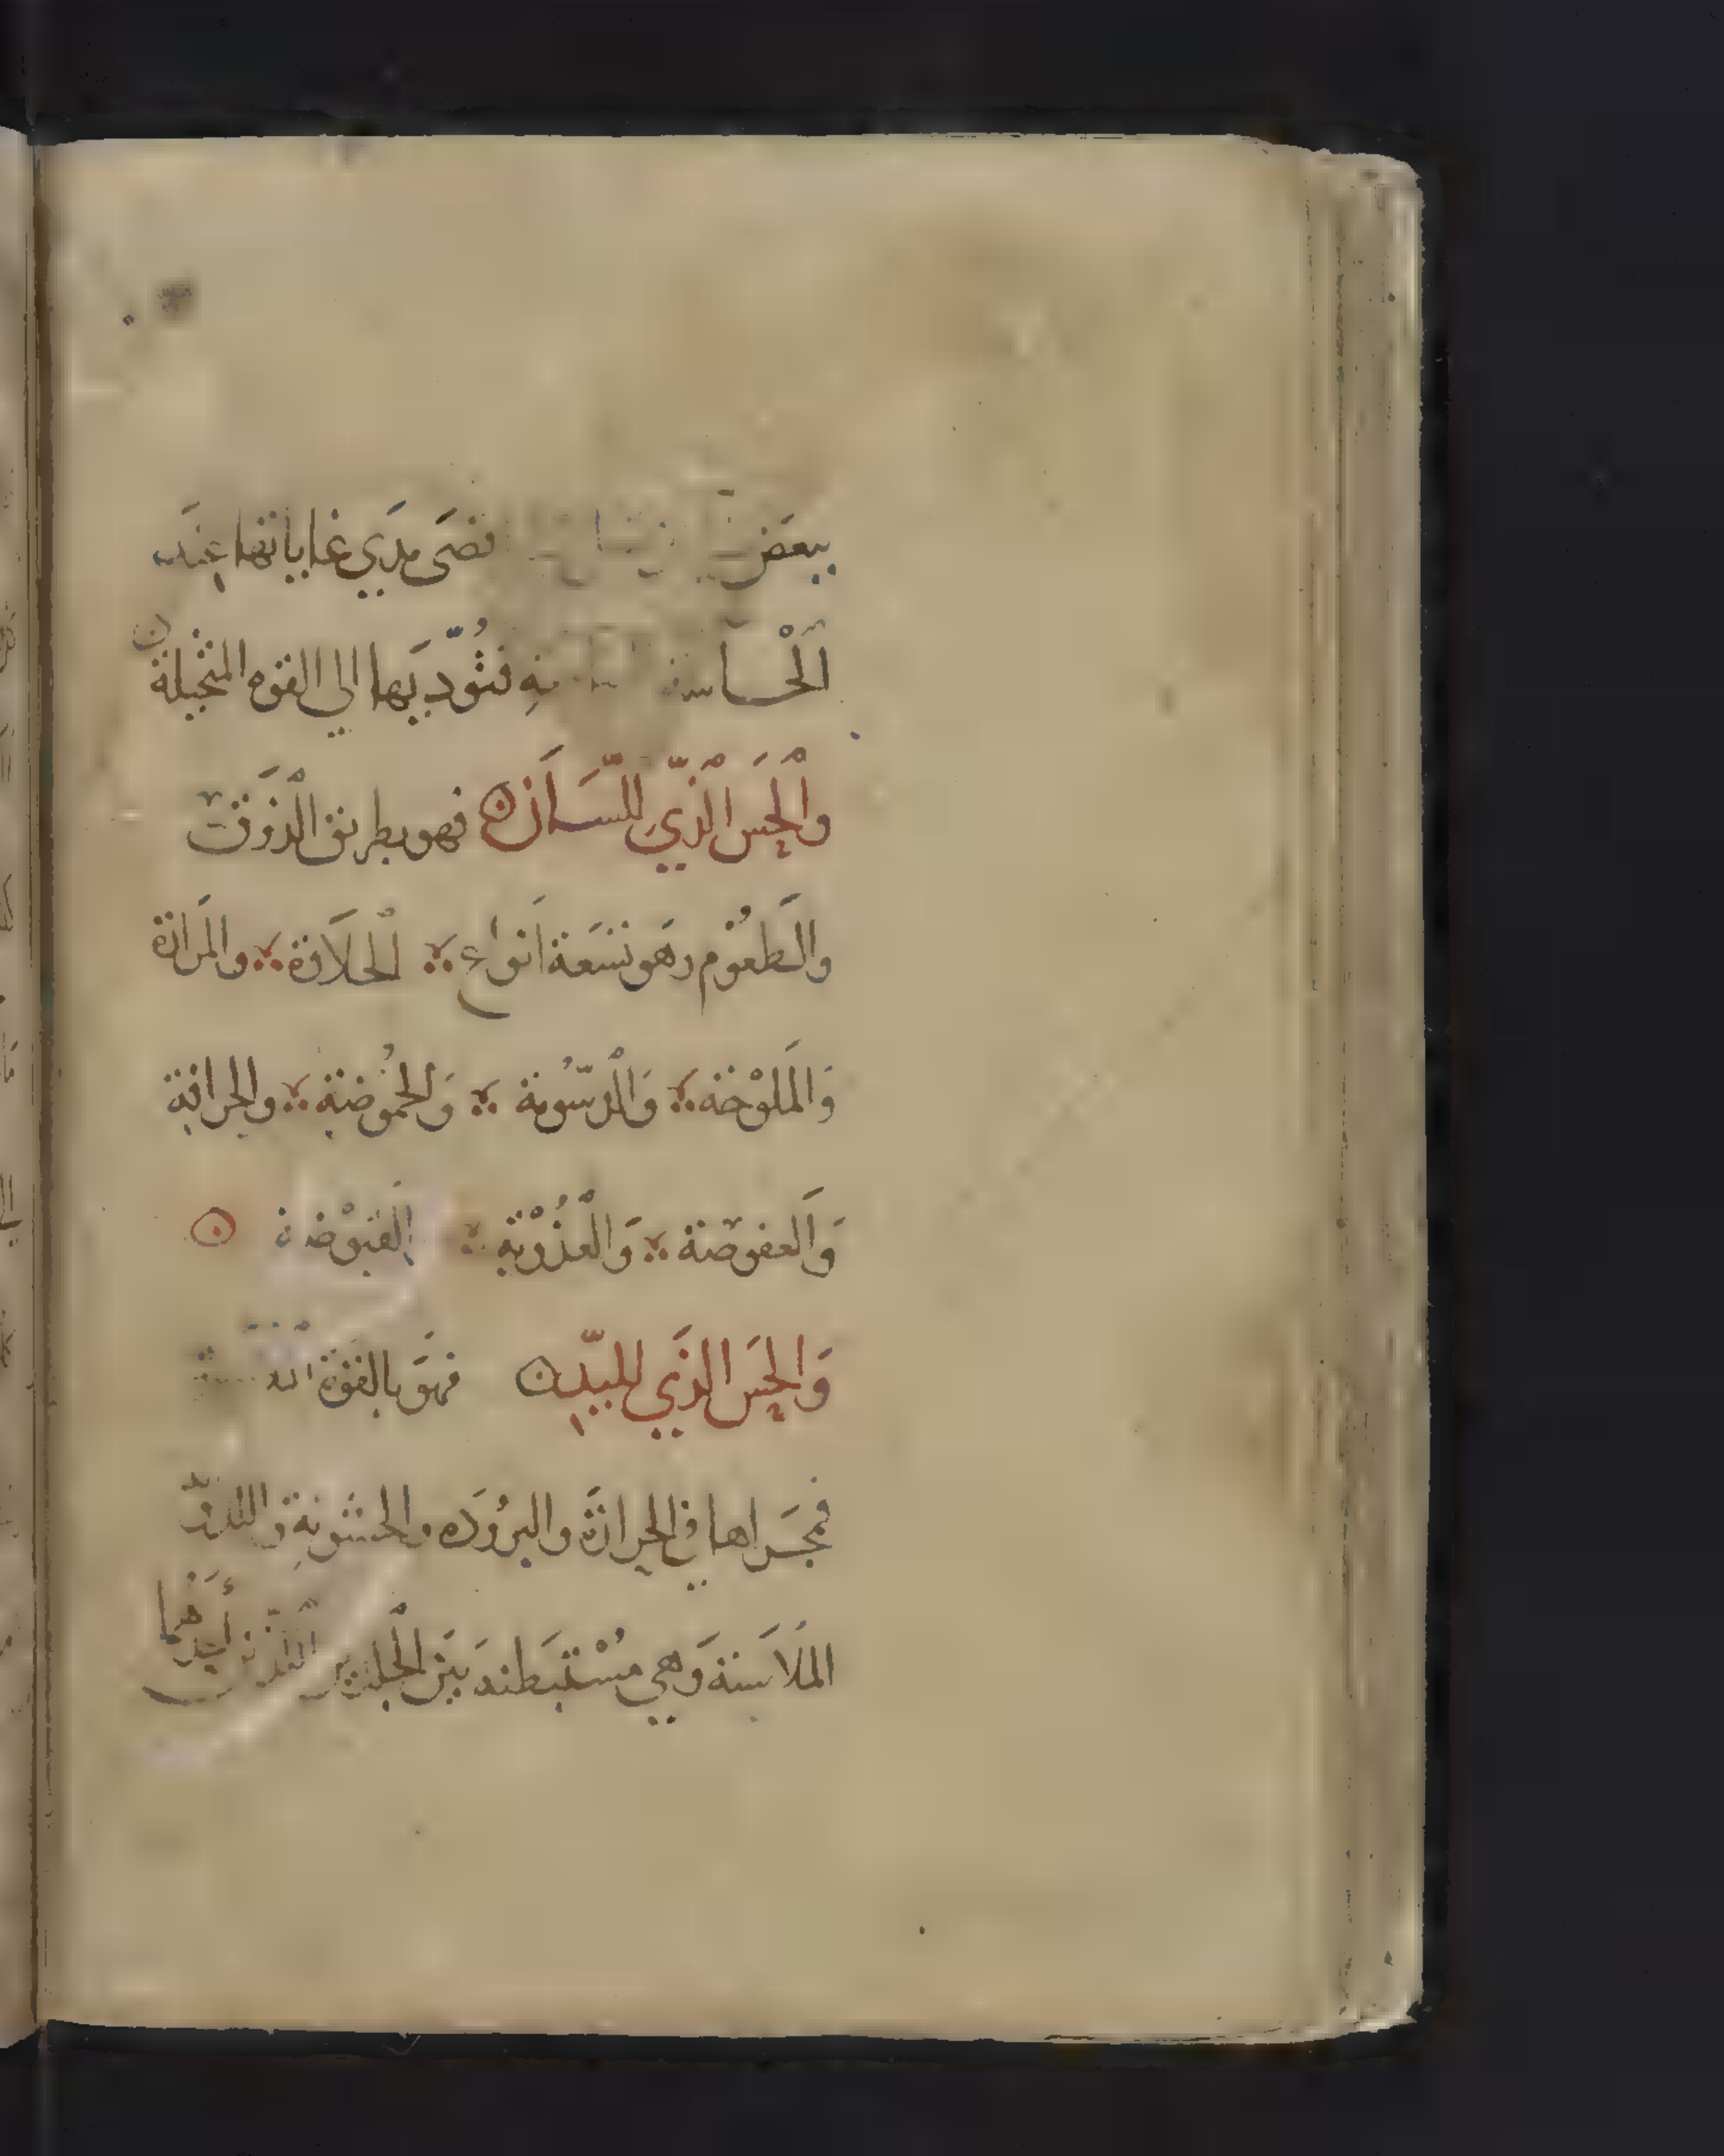 ببعض فصَى مدَي غاياتها عند
اَلْحساسة فتُؤدّيها الي القوه المتخيلة
والْحِسَ الْذّي للّسَان فهو بطريق الْذوق
والَطعوُم وهَو تسَعة اَنواع الْحلاَوة والمَرارة
وَالمَلوْحة وَالْدسّوُمة وَالحمُوضة والحرافة
وَالَعفوصة وَالْعذُوْبة القبَوْضة
وَالحِسَ الذَي لليّدِ فهوَ بالقوَة
فمجَراها في الحرارَة والبروُدَه والخشَونةِ
المَلاَسة وَهي مسُتْبَطنة بيَن الْجلدين